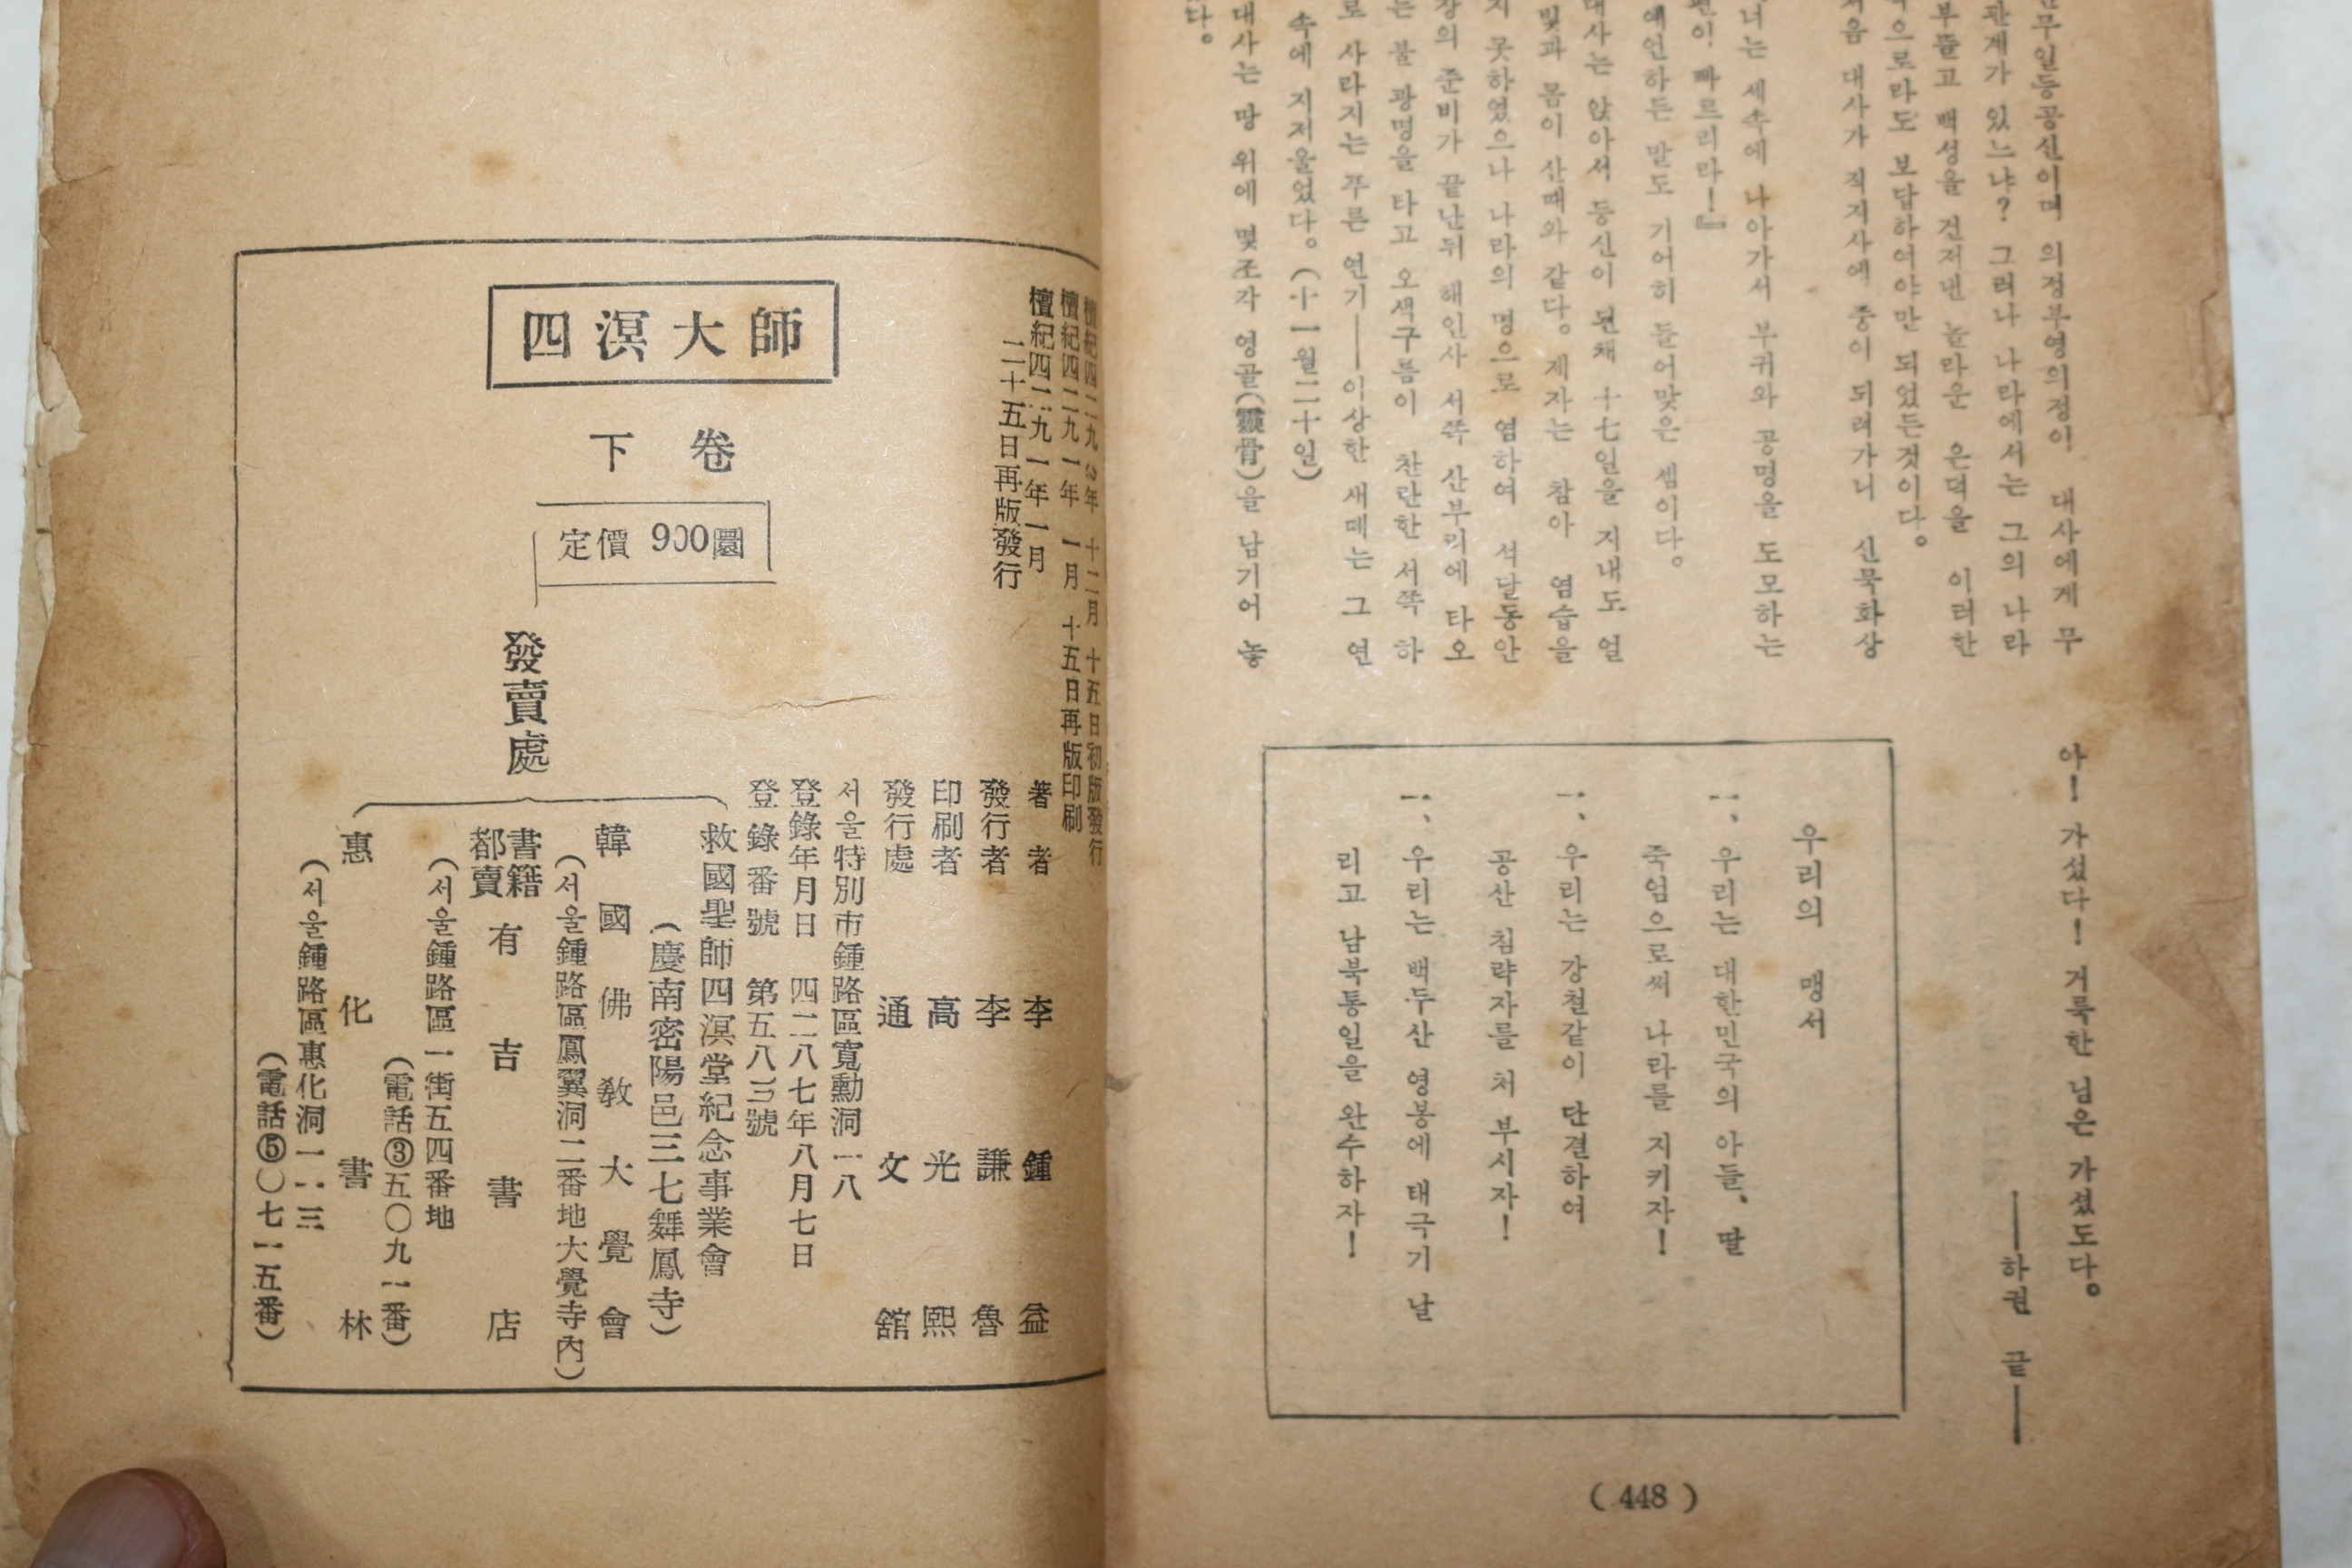 신무일등공신이며 의정부영의정이 대사에게 무
관계가 있느냐? 그러나 나라에서는 그의 나라
부뜰고 백성을 건저낸 놀라운 은덕을 이러한
으로라도 보답하여야만 되었든것이다。
처음 대사가 직지사에 중이 되려가니 신묵화상
너는 세속에 나아가서 부귀와 공명을 도모하는
편이 빠르리라!』
예언하든 말도 기어히 들어맞은 셈이다。
대사는 앉아서 등신이 된채 十七일을 지내도 얼
빛과 몸이 산때와 같다。제자는 참아 염습을
지 못하였으나 나라의 명으로 염하여 석달동안
강의 준비가 끝난뒤 해인사 서쪽 산부리에 타오
는 불 광명을 타고 오색구름이 찬란한 서쪽 하
로 사라지는 푸른 연기——이상한 새떼는 그 연
속에 지저울었다。(十一월二十일)
대사는 땅 위에 몇조각 영골(靈骨)을 남기어 놓
다。
아! 가셨다! 거룩한 님은 가셨도다。
——하권 끝——
우리의 맹서
一、우리는 대한민국의 아들、딸
죽엄으로써 나라를 지키자!
一、우리는 강철같이 단결하여
공산 침략자를 처 부시자!
一、우리는 백두산 영봉에 태극기 날
리고 남북통일을 완수하자!
( 448 )
年 十二月 十五日初版發行
檀紀四二九一年 一月 十五日再版印刷
檀紀四二九一年一月
二十五日再版發行
四溟大師
下卷
定價 900圜
著者 李鍾益
發行者 李謙魯
印刷者 高光熙
發行處 通文舘
서울特別市鍾路區寬勳洞一八
登錄年月日 四二八七年八月七日
登錄番號 第五八三號
發賣處
救國聖師四溟堂紀念事業會
(慶南密陽邑三七舞鳳寺)
韓國佛敎大覺會
(서울鍾路區鳳翼洞二番地大覺寺內)
書籍都賣 有吉書店
(서울鍾路區一街五四番地
(電話③五〇九一番)
惠化書林
(서울鍾路區惠化洞一一三
(電話⑤〇七一五番)